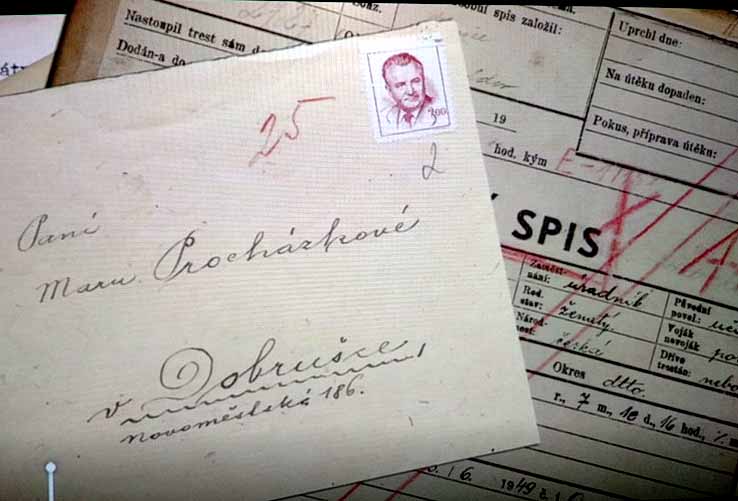 Nastoupil trest sám
Dodán-a do
osobní spis založil:
Uprchl dne:
Na útěku dopaden:
Pokus, příprava útěku:
19
hod. kým
25
3,00
2
SPIS
Paní
Marii Procházkové
v Dobrušce
Novoměstská 186.
Zaměst-
nání: úradník
Rod.
stav: ženatý
Národ-
nost: česká
Původní
povol.:
Voják
nevoják
Dříve
trestán:
Okres dtto.
r., 7 m., 10 d., 16 hod.,
6. 1949 č.